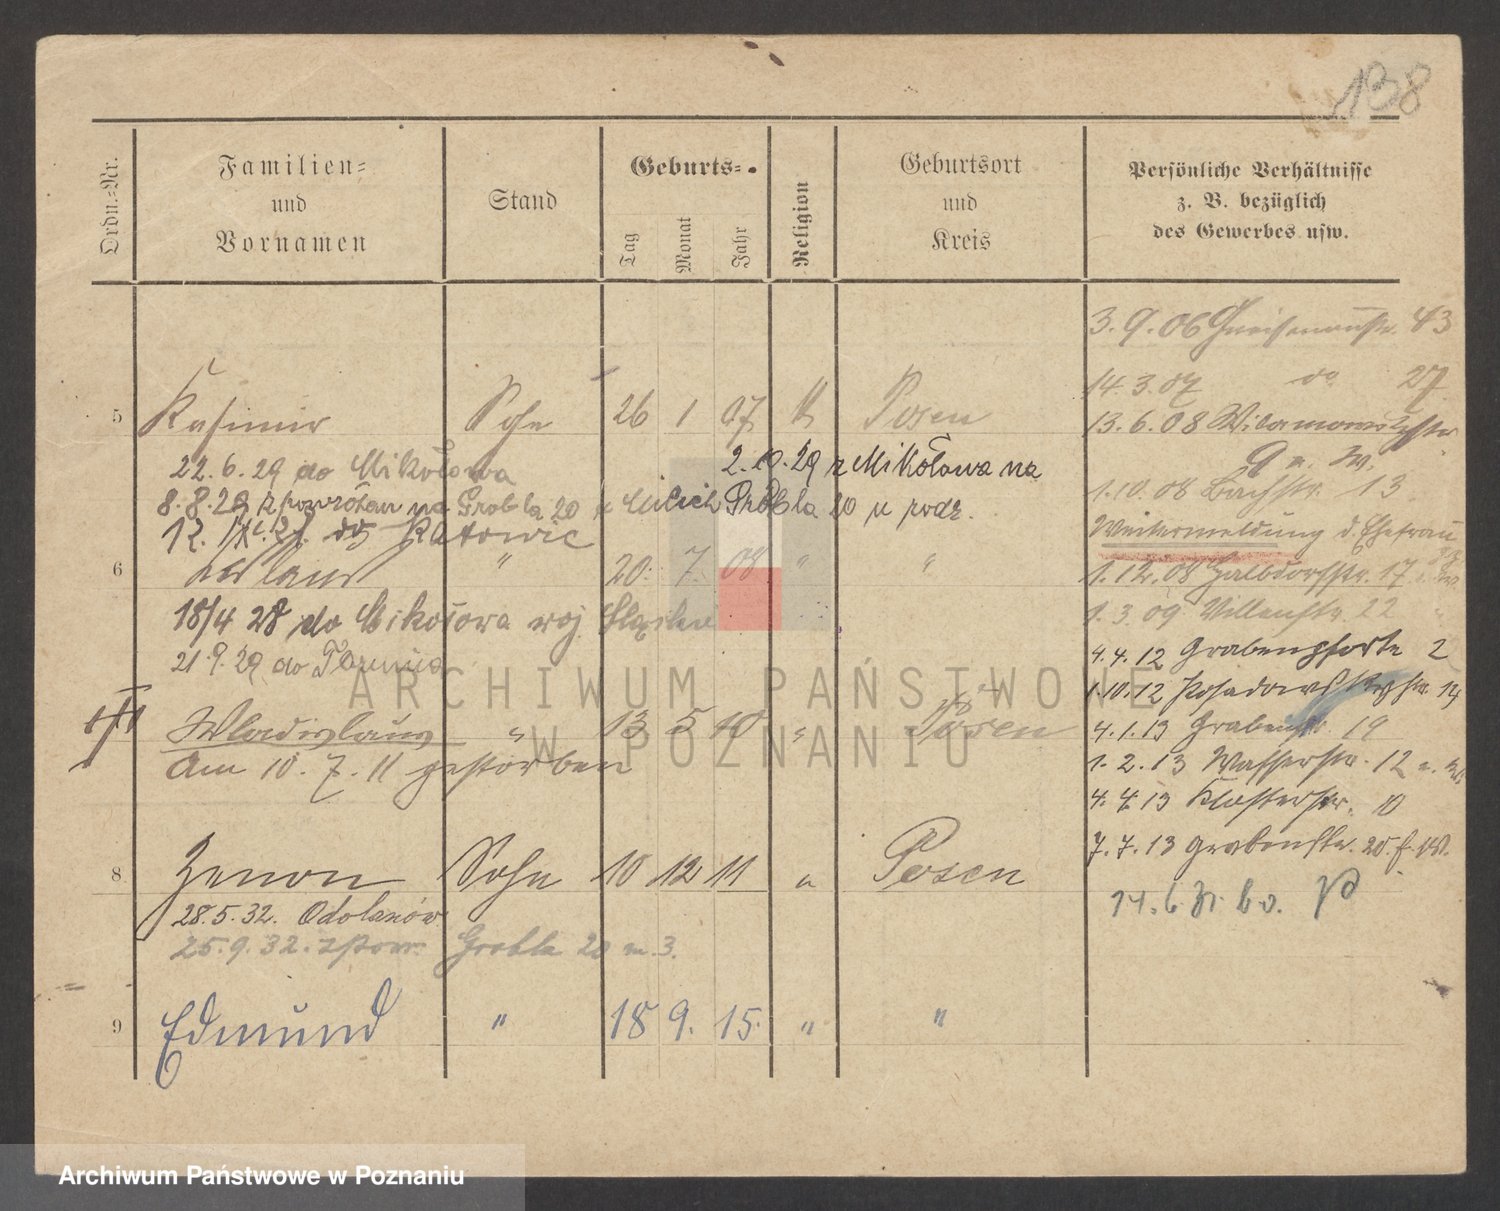 138
Ordn.-Nr.
Familien-
und
Vornamen
Stand
Geburts-
Tag
Monat
Jahr
Religion
Geburtsort
und
Kreis
Persönliche Verhältnisse
z. B. bezüglich
des Gewerbes usw.
5 Kasimir Sohn 26 1 07 Posen
22.6.29 do Mikołowa
2.10.29 z Mikołowa na
8.8.29 z powrotem na Grobla 20 Grobla 20 u rodz.
do Katowic
6 " 20. 7. 08 " "
18/4 28 do Mikołowa woj
21.9.29 do
Wladislaus " 13 5 10 " Posen
Am 10.7.11 gestorben
8 Zenon Sohn 10 12 11 " Posen
28.5.32. Odolanów
25.9.32. z pow. Grobla 20 m. 3.
9 Edmund " 18 9. 15. " "
3.9.06 Gneisenaustr. 43
14.3.07 do 27
13.6.08
1.10.08 Bachstr. 13
Weitermeldung d. Ehefrau
1.12.08 17
1.3.09 Villenstr. 22
4.4.12 Grabenpforte 2
1.10.12 Posadowskystr.
4.1.13 Grabenstr. 19
1.2.13 Wasserstr. 12
4.4.13 Klosterstr. 10
7.7.13 Grabenstr. 20.
ARCHIWUM PAŃSTWOWE
W POZNANIU
Archiwum Państwowe w Poznaniu